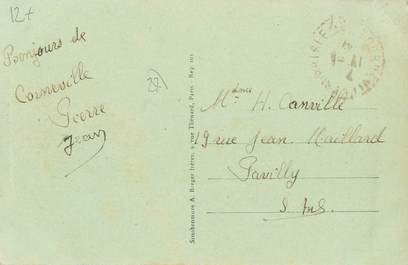 12+
Bonjours de
Corneville
Pierre
Jean
(27)
Simshommes A. Breger frères, 9 rue Thénard, Paris - Rep. int.
Mdmes H. Canville
19 rue Jean Maillard
Pavilly
S. Inf.